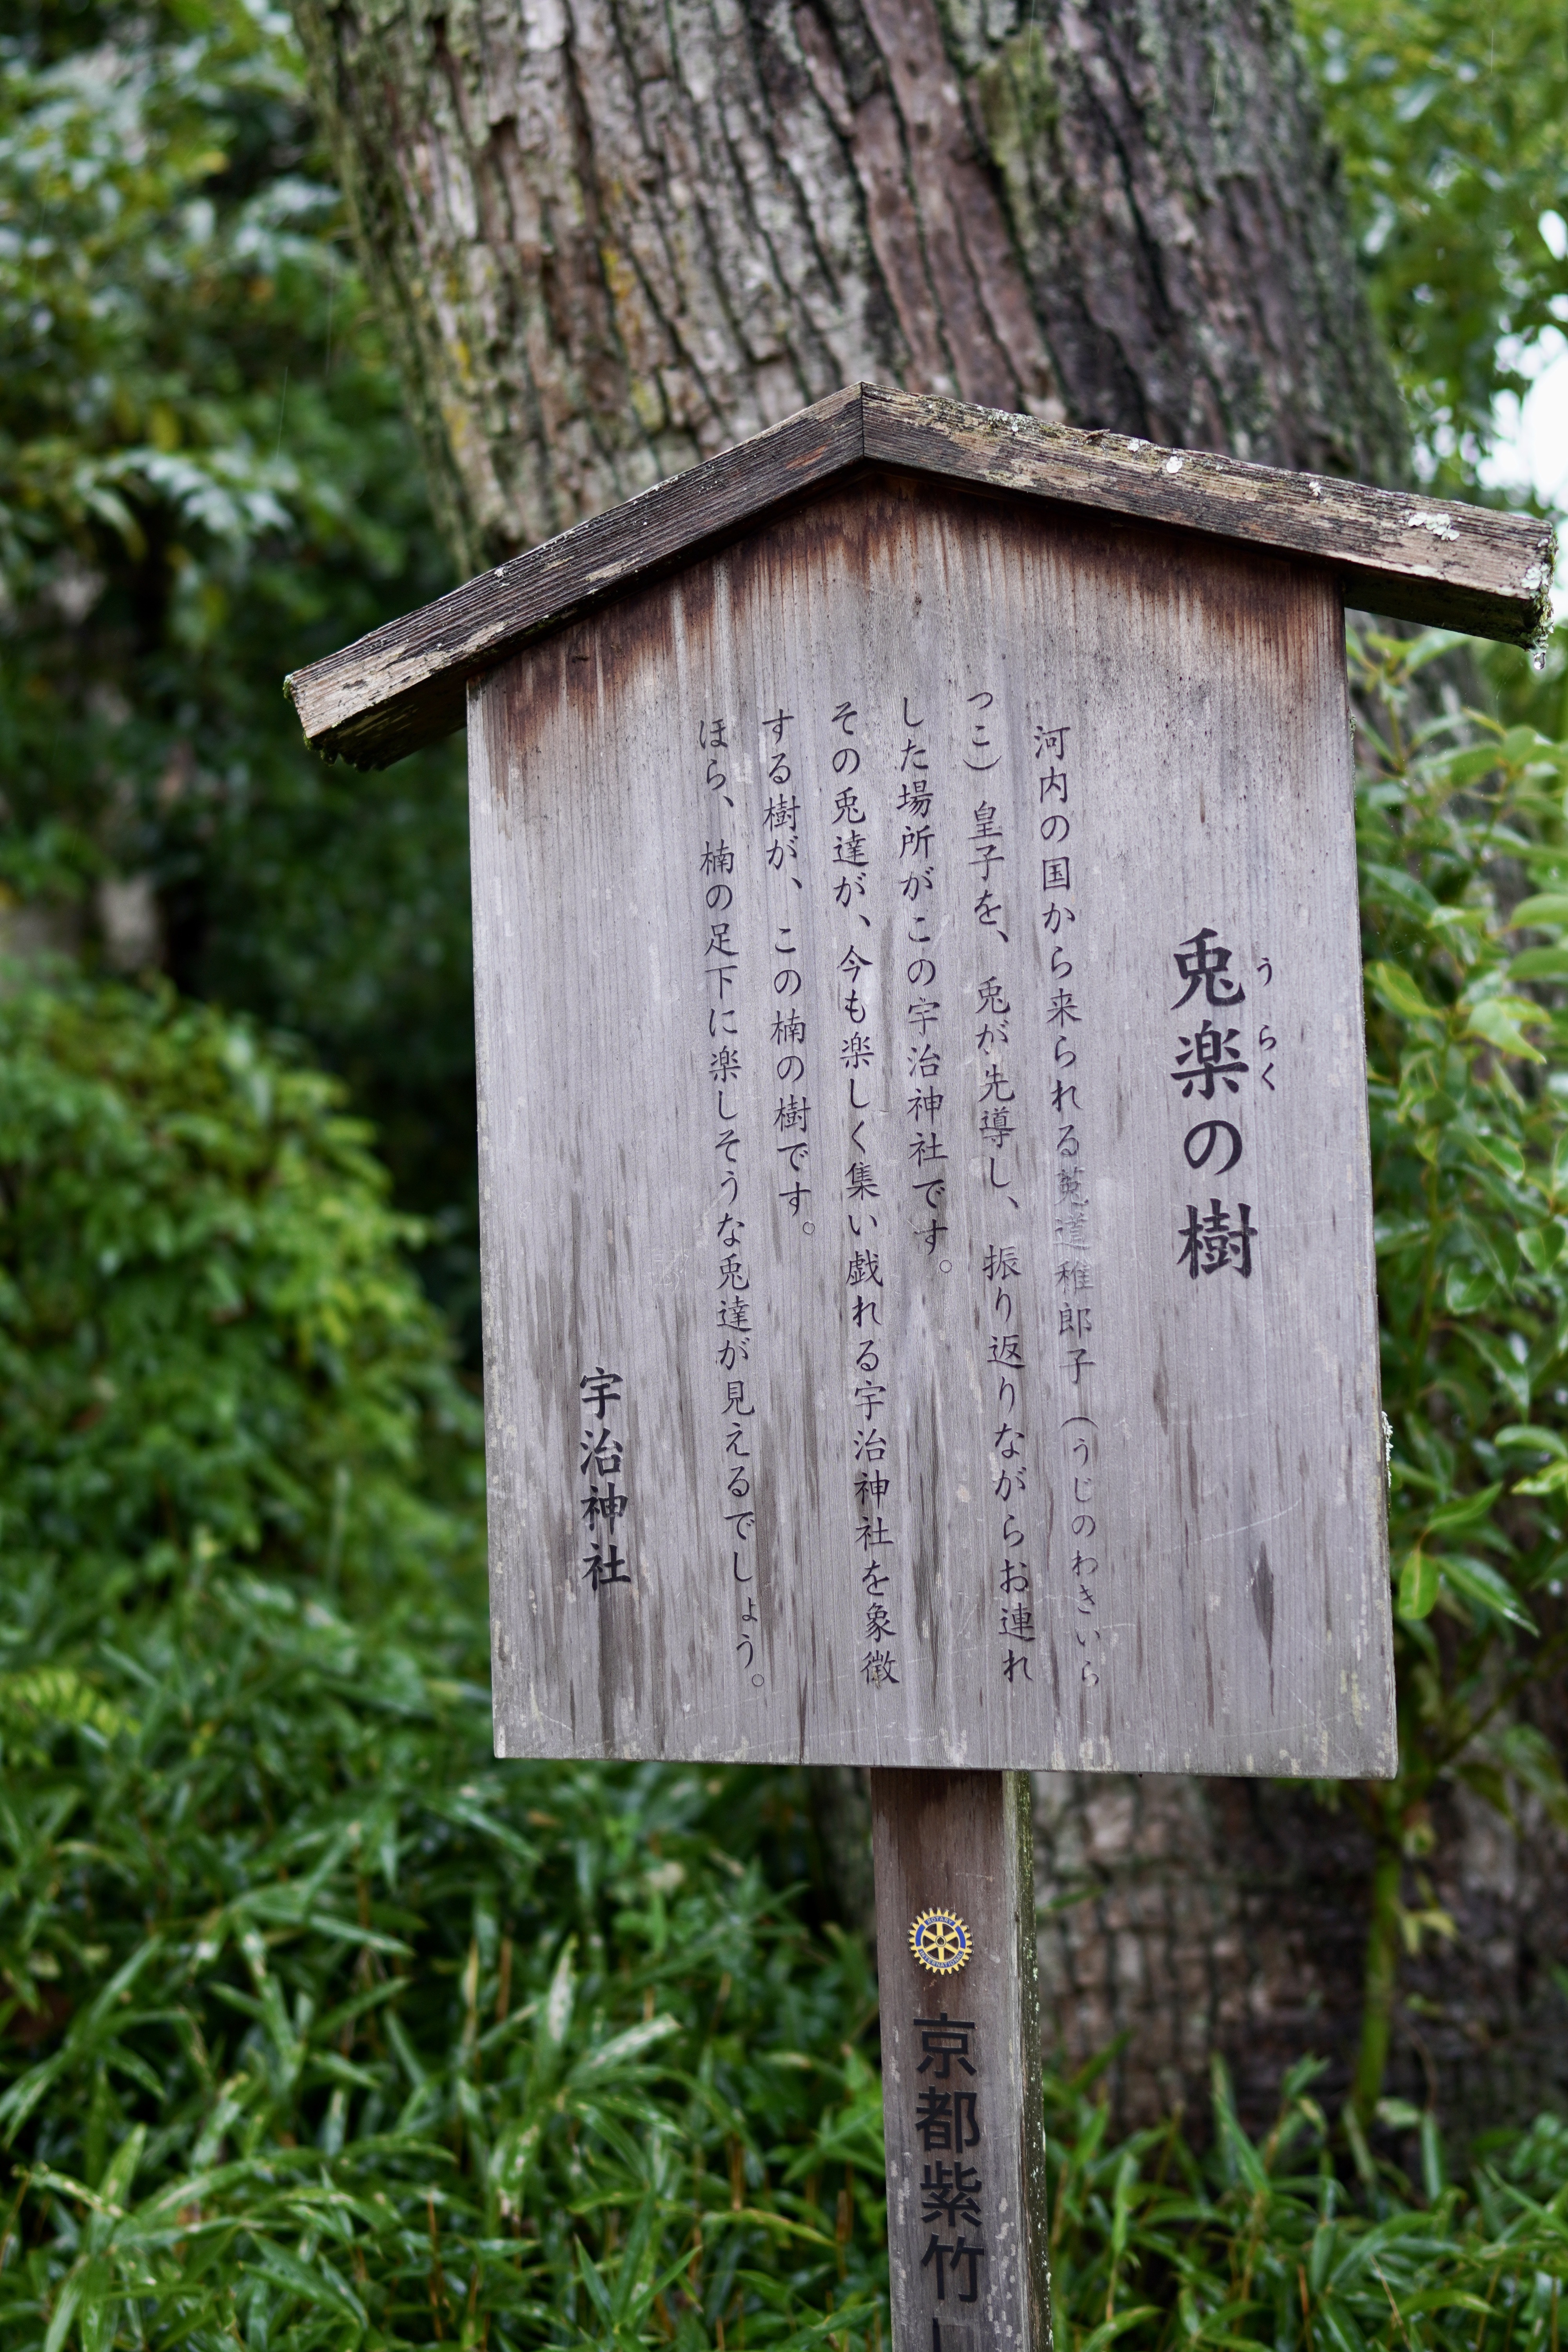 兎楽の樹
うらく
河内の国から来られる菟道稚郎子（うじのわきいら
つこ）皇子を、兎が先導し、振り返りながらお連れ
した場所がこの宇治神社です。
その兎達が、今も楽しく集い戯れる宇治神社を象徴
する樹が、この楠の樹です。
ほら、楠の足下に楽しそうな兎達が見えるでしょう。
宇治神社
ROTARY
INTERNATIONAL
京都紫竹